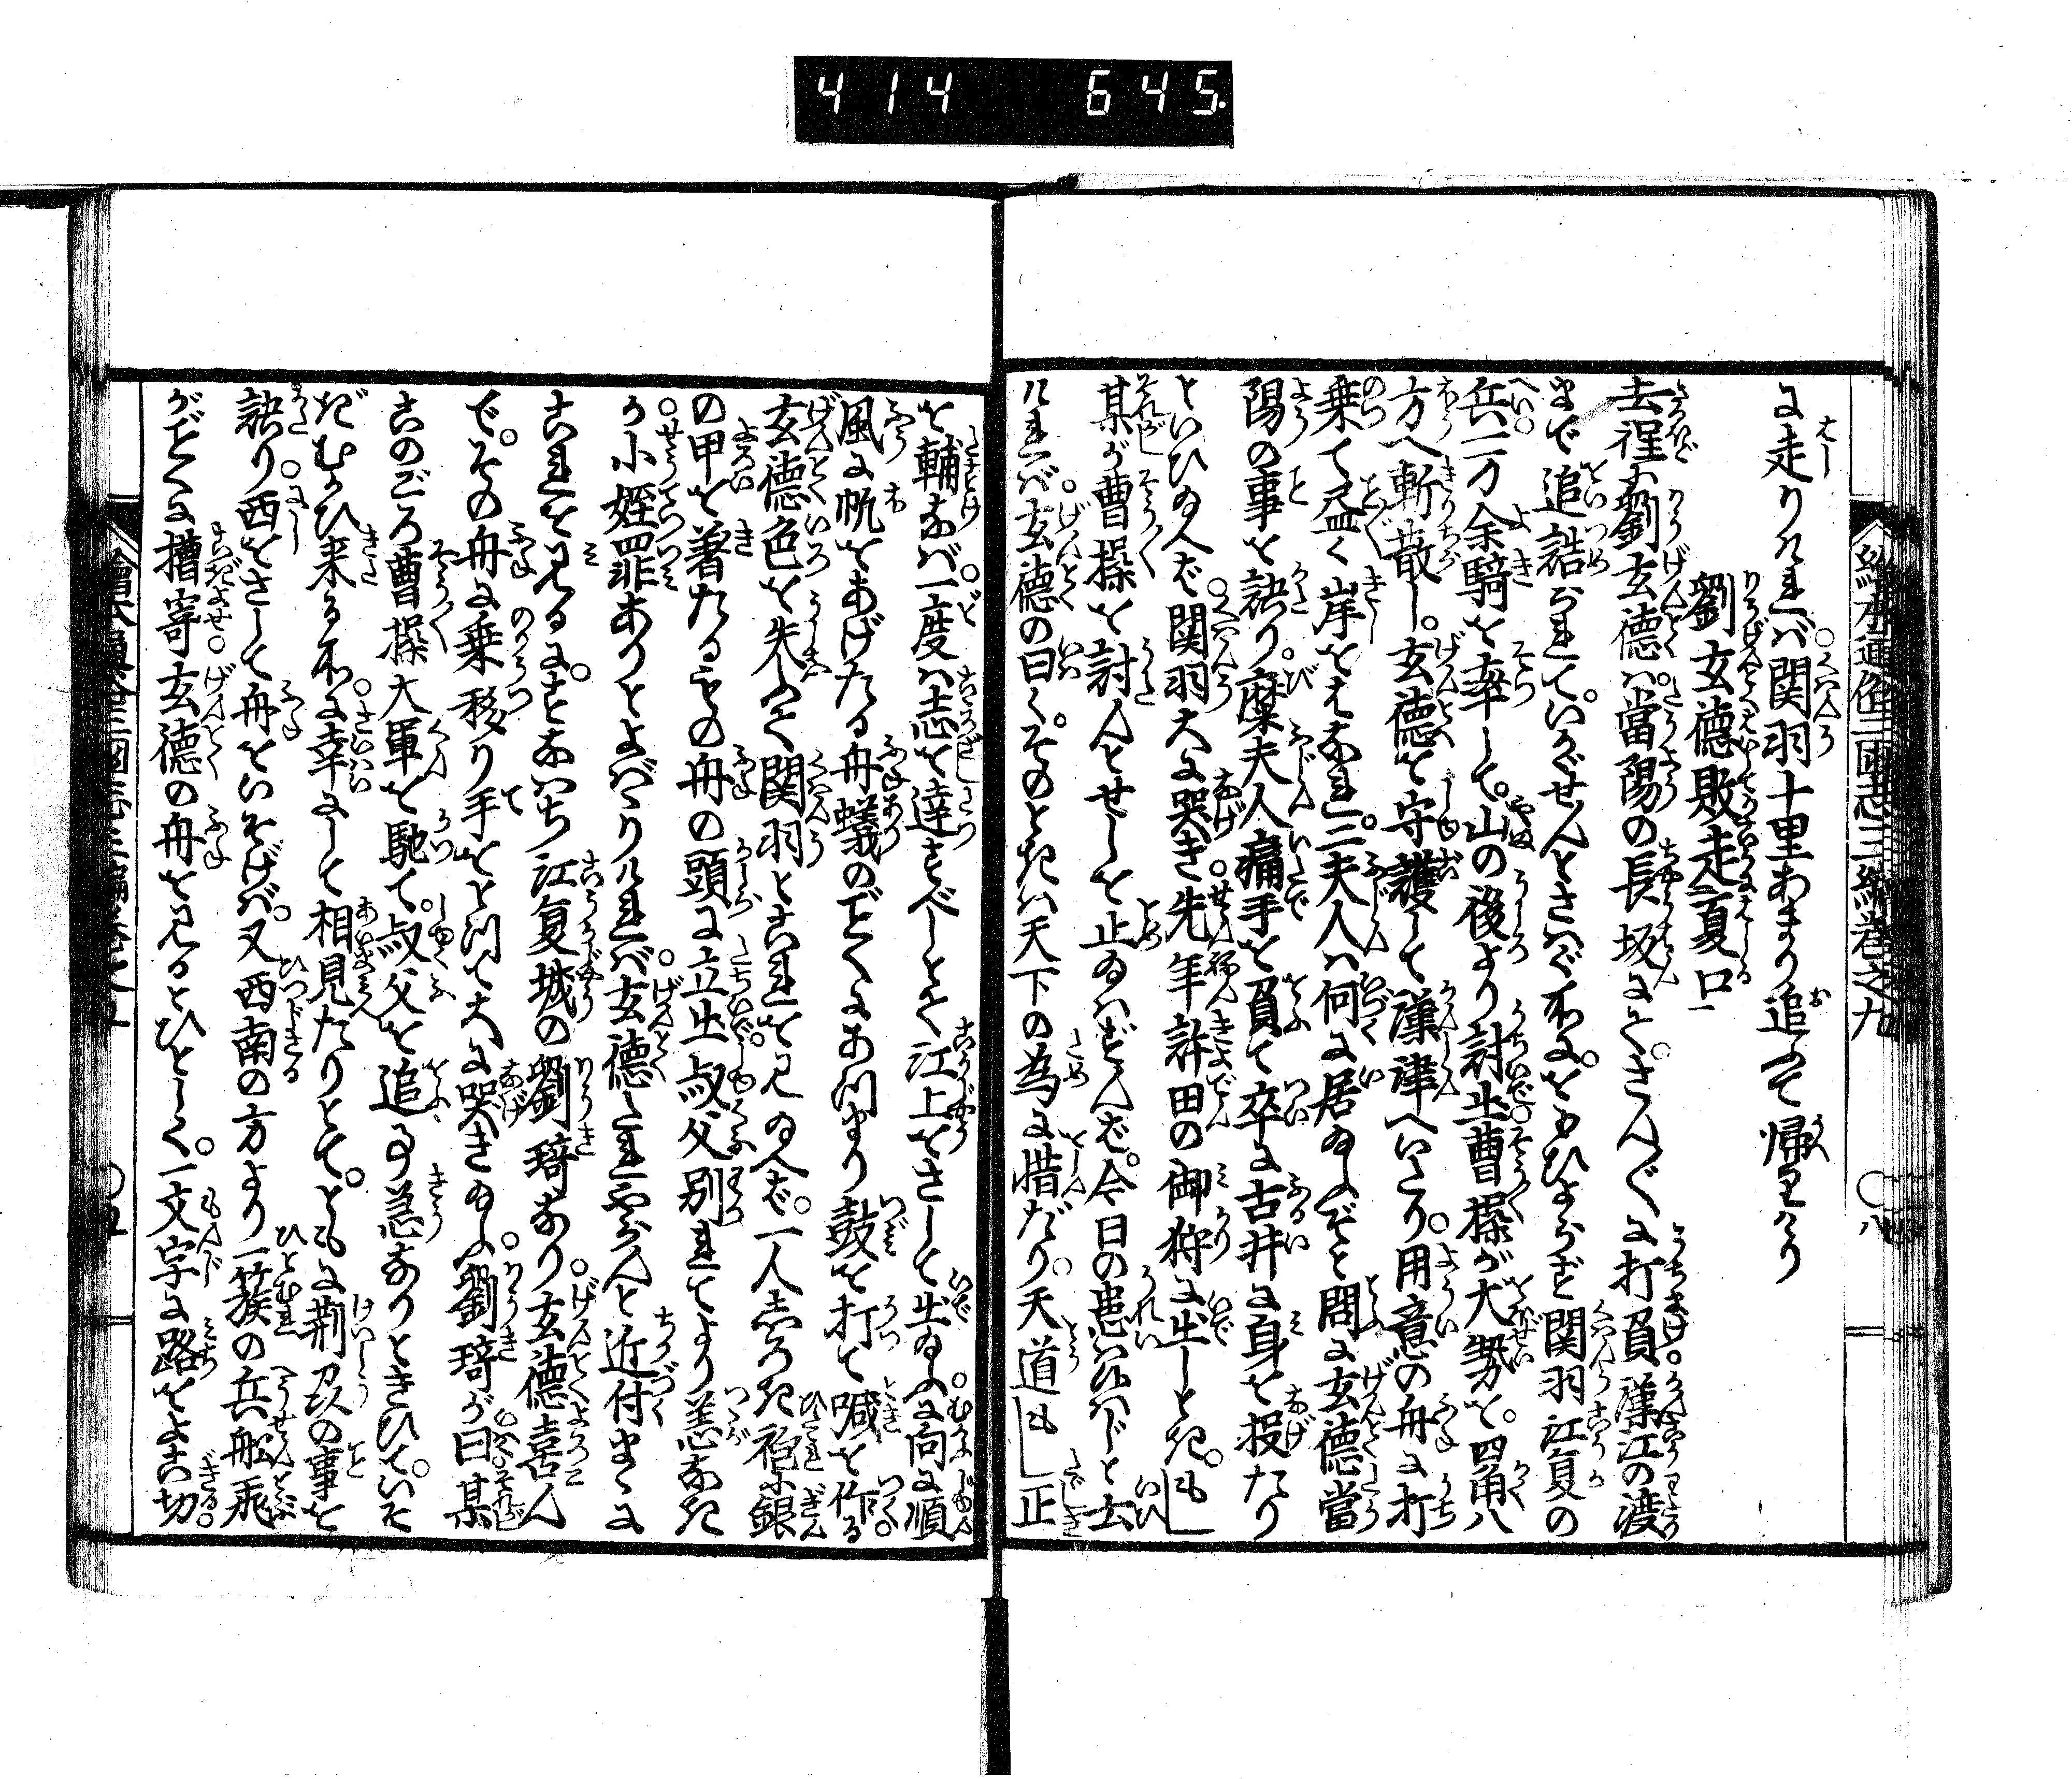 414 645.
繪本通俗三國志三編巻之九 ○八
に走りければ関羽十里あまり追ふて帰りけり
劉玄德敗走夏口
去程に劉玄德は當陽の長坂にてさんざんに打負漢江の渡
まで追詰られていかゞせんとさはぐ所にをもひよらず関羽江夏の
兵一万余騎を率して山の後より討出曹操が大勢を四角八
方へ斬散し玄德を守護して漢津へいたり用意の舟に打
乗て尽く岸をはなれ二夫人は何に居ゐふぞと問に玄德當
陽の事を訣り糜夫人痛手を負て卒に古井に身を投たり
といひゐへば関羽大に哭き先年許田の御狩に出しとき もし
某が曹操を討んとせしを止ゐはずんば今日の患はいはじと云
ければ玄德の曰くそのときは天下の為に惜だり天道もし正
を輔なば一度は志を達すべしとて江上をさして出ゐふに向に順
風に帆をあげたる舟蟻のごとくにあつまり鼓を打て喊を作る
玄德色を失へて関羽とこれを見ゐへば一人しろき袍に銀
の甲を着たるもの舟の頭に立出叔父別れてより恙なき
か小姪罪ありとよばゝりければ玄德たれやらんと近付まゝに
これを見るにすなはち江夏城の劉琦なり玄德喜ん
でその舟に乗移り手をとつて大に哭きゐふ劉琦が曰某
このごろ曹操大軍を馳て叔父を追る事急なりときひていそ
ぎむかひ来る所に幸にして相見たりとてともに荊州の事を
訣り西をさして舟をいそげば又西南の方より一簇の兵舩飛
がごとくに擂寄玄德の舟を見るとひとしく一文字に路をよこ切